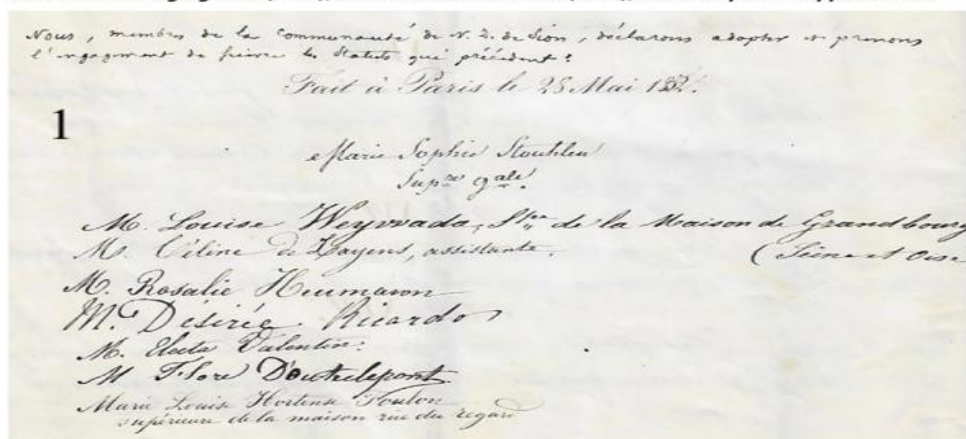 Nous, membres de la Communauté de N. D. de Sion, déclarons adopter et prenons
l'engagement de suivre les Statuts qui précédent :
Fait à Paris le 28 Mai
1
Marie Sophie Stouhlen
Supre gale.
M. Louise Weywada, Sre de la Maison de Grandbourg
M. Céline de Layens, assistante. (Seine et Oise
M. Rosalie Heumann
M. Désirée Ricardo
M. Electa Valentin.
M Flore Doutrelepont
Marie Louise Hortense Toulon
supérieure de la maison rue du regard